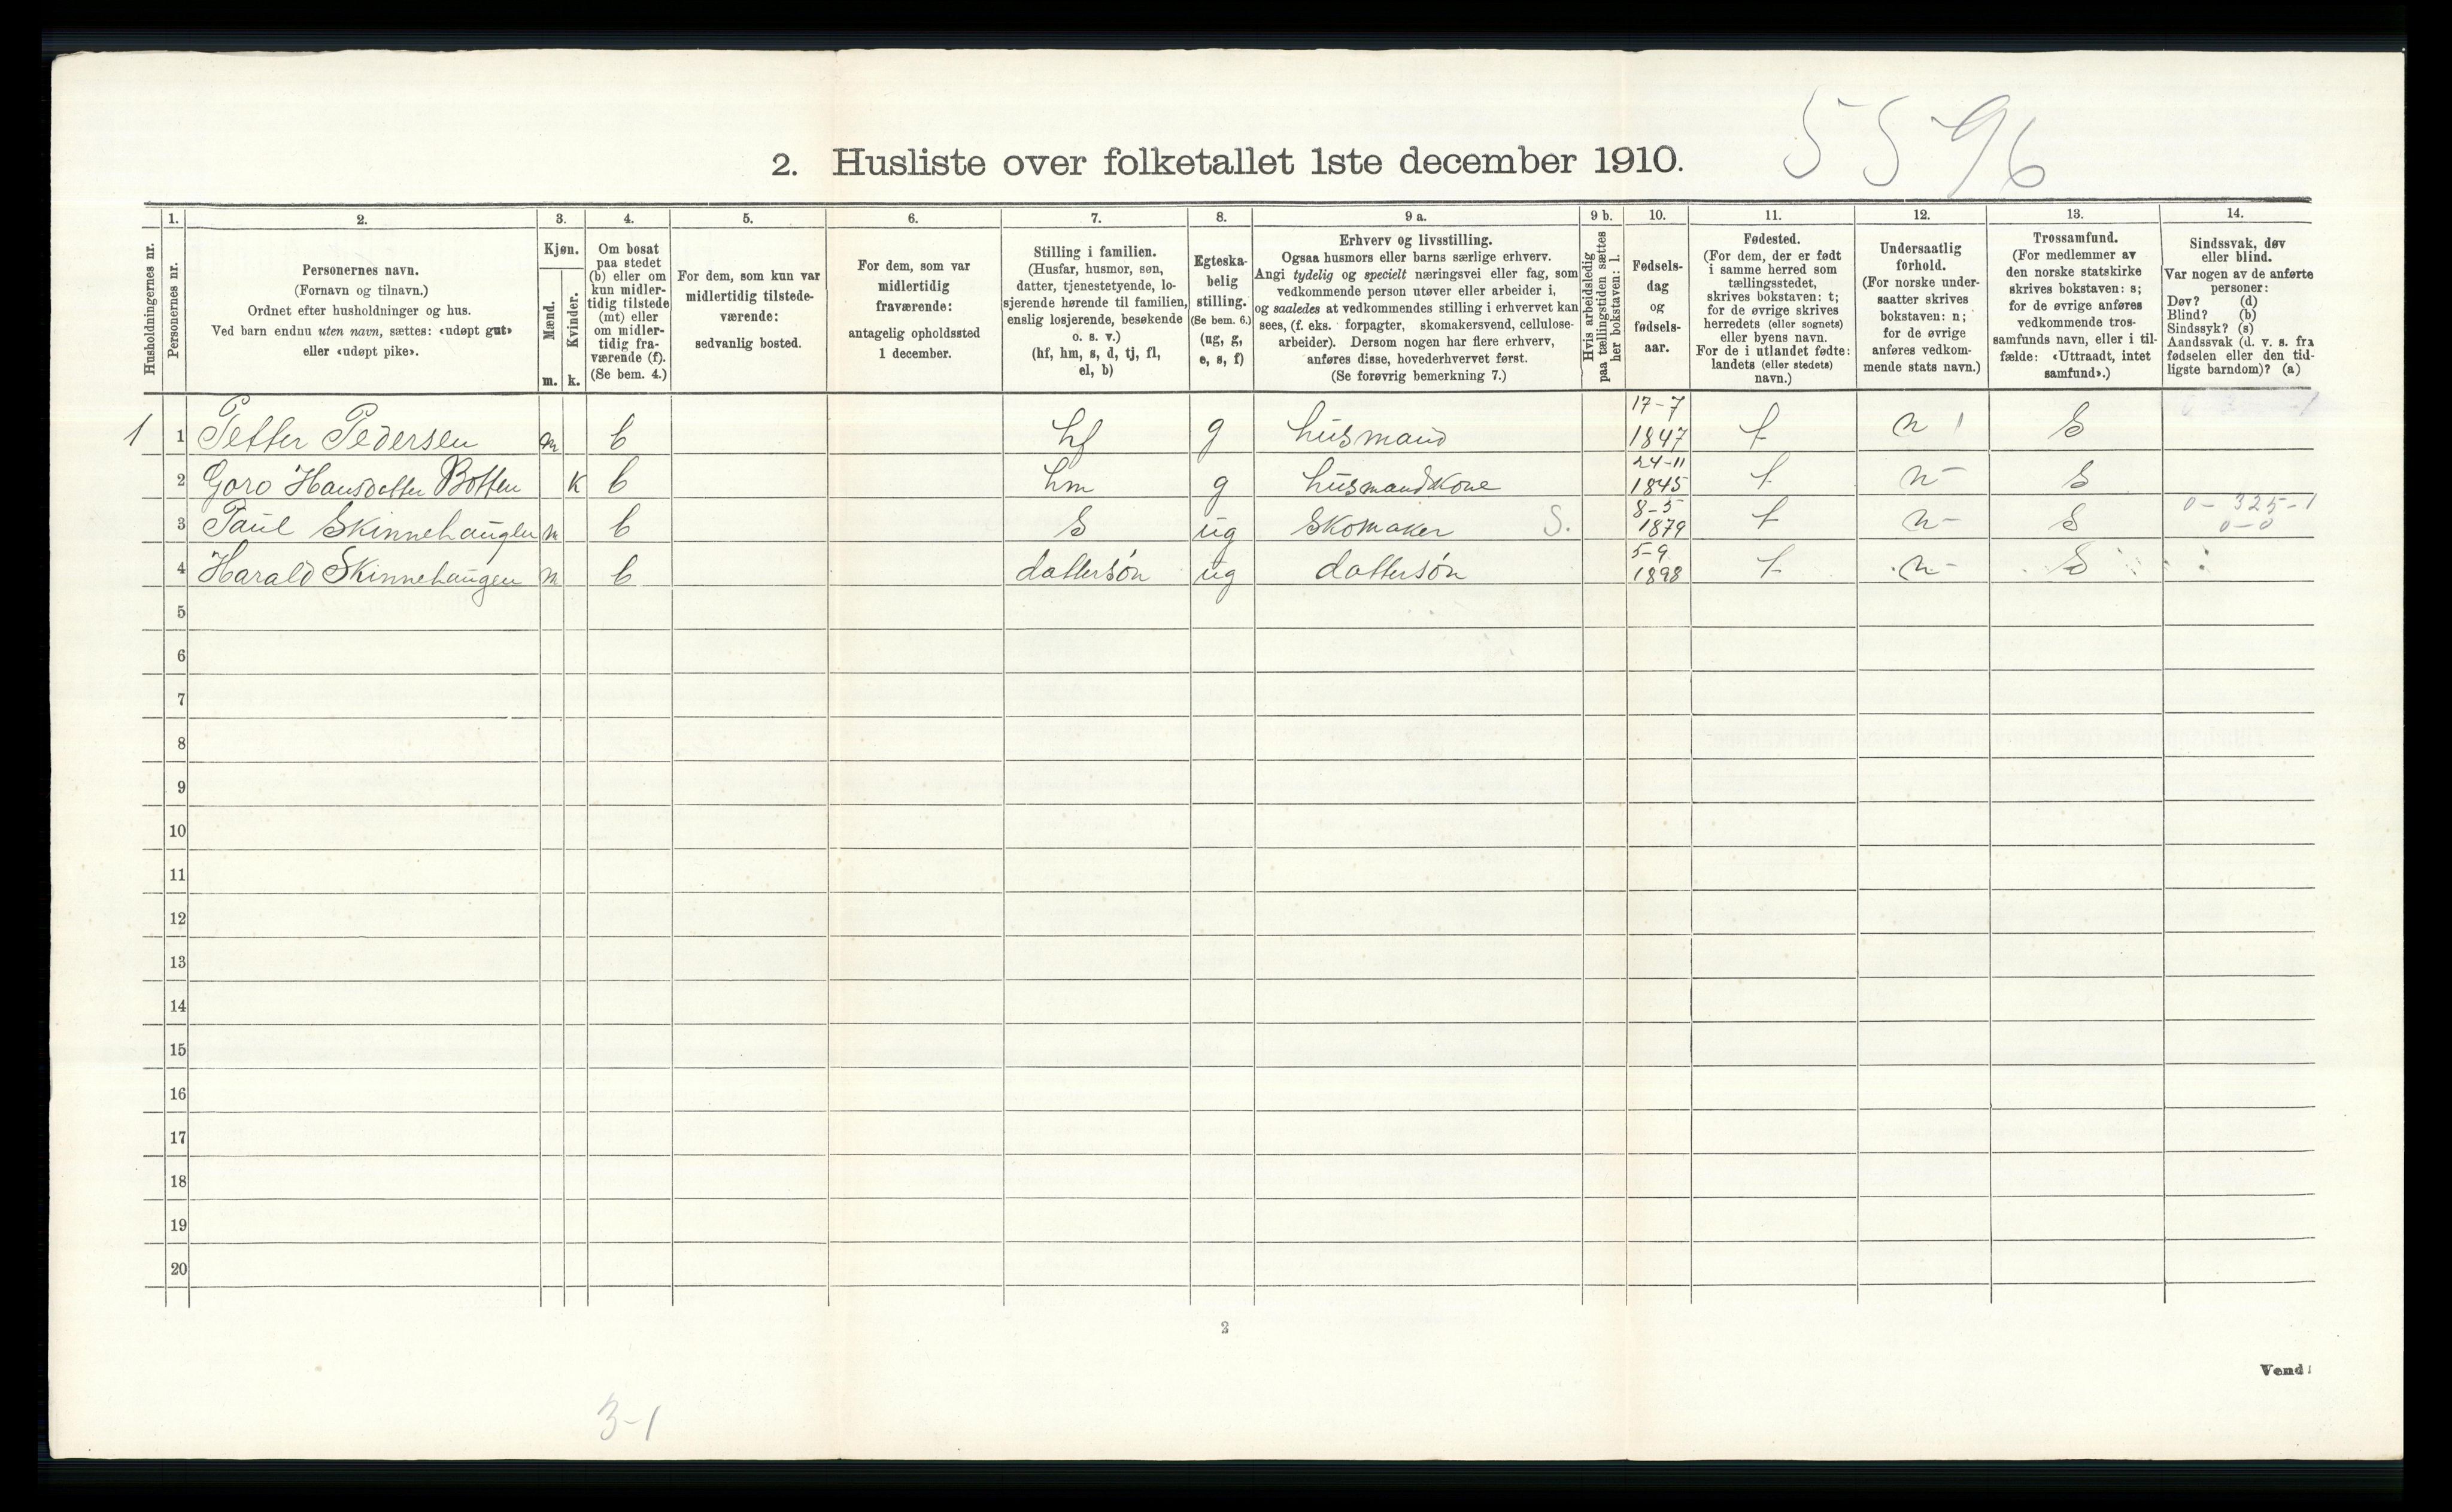 5596
2. Husliste over folketallet 1ste december 1910.
Husholdningernes nr.
1.
Personernes nr.
2.
Personernes navn.
(Fornavn og tilnavn.)
Ordnet efter husholdninger og hus.
Ved barn endnu uten navn, sættes: «udøpt gut»
eller «udøpt pike».
3.
Kjøn.
Mænd.
Kvinder.
m. k.
4.
Om bosat
paa stedet
(b) eller om
kun midler-
tidig tilstede
(mt) eller
om midler-
tidig fra-
værende (f).
(Se bem. 4.)
5.
For dem, som kun var
midlertidig tilstede-
værende:
sedvanlig bosted.
6.
For dem, som var
midlertidig
fraværende:
antagelig opholdssted
1 december.
7.
Stilling i familien.
(Husfar, husmor, søn,
datter, tjenestetyende, lo-
sjerende hørende til familien,
enslig losjerende, besøkende
o. s. v.)
(hf, hm, s, d, tj, fl,
el, b)
8.
Egteska-
belig
stilling.
(Se bem. 6.)
(ug, g,
e, s, f)
9 a.
Erhverv og livsstilling.
Ogsaa husmors eller barns særlige erhverv.
Angi tydelig og specielt næringsvei eller fag, som
vedkommende person utøver eller arbeider i,
og saaledes at vedkommendes stilling i erhvervet kan
sees, (f. eks. forpagter, skomakersvend, cellulose-
arbeider). Dersom nogen har flere erhverv,
anføres disse, hovederhvervet først.
(Se forøvrig bemerkning 7.)
9 b.
Hvis arbeidsledig
paa tællingstiden sættes
her bokstaven: l.
10.
Fødsels-
dag
og
fødsels-
aar.
11.
Fødested.
(For dem, der er født
i samme herred som
tællingsstedet,
skrives bokstaven: t;
for de øvrige skrives
herredets (eller sognets)
eller byens navn.
For de i utlandet fødte:
landets (eller stedets)
navn.)
12.
Undersaatlig
forhold.
(For norske under-
saatter skrives
bokstaven: n;
for de øvrige
anføres vedkom-
mende stats navn.)
13.
Trossamfund.
(For medlemmer av
den norske statskirke
skrives bokstaven: s;
for de øvrige anføres
vedkommende tros-
samfunds navn, eller i til-
fælde: «Uttraadt, intet
samfund».)
14.
Sindssvak, døv
eller blind.
Var nogen av de anførte
personer:
Døv? (d)
Blind? (b)
Sindssyk? (s)
Aandssvak (d. v. s. fra
fødselen eller den tid-
ligste barndom)? (a)
1 1 Petter Pedersen m b hf g husmand 17-7 1847 t n S
2 Goro Hansdatter Botten k b hm g husmandkone 24-11 1845 t n S
3 Paul Skinnehaugen m b S ug Skomaker S. 8-5 1879 t n S 0-325-1 0-0
4 Harald Skinnehaugen m b dattersøn ug dattersøn 5-9 1898 t n S
5
6
7
8
9
10
11
12
13
14
15
16
17
18
19
20
2
Vend!
3-1